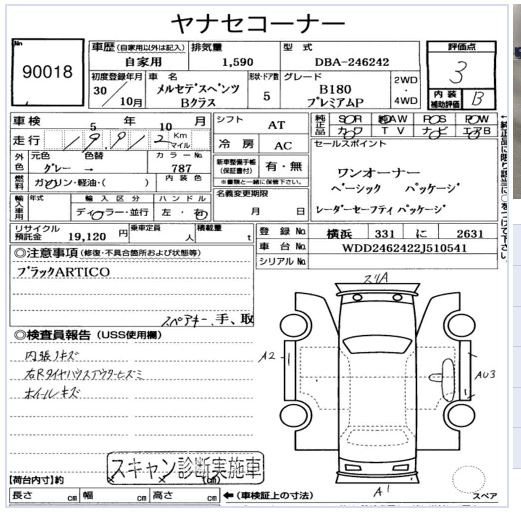 ヤナセコーナー
No.
90018
車歴 (自家用以外は記入) 排気量 型式
自家用 1,590 DBA-246242
評価点
3
内装補助評価 B
初度登録年月 車名 形状・ドア数 グレード
30 / 10月 メルセデスベンツ Bクラス 5 B180 プレミアムP
2WD
4WD
車検 5年 10月
シフト AT
純正品 SOR AW PS PW
カワ TV ナビ エアB
走行 19,912 Km マイル
冷房 AC
セールスポイント
外色 元色 色替 カラーNo.
グレー → 787
新車整備手帳 (保証書付) 有・無
※書類と一緒に保管下さい。
ワンオーナー
ベーシック パッケージ
レーダーセーフティ パッケージ
燃料 ガソリン・軽油・( ) 内装色
名義変更期限
月 日
輸入車用 年式 輸入区分 ハンドル
ディーラー・並行 左・右
リサイクル預託金 19,120 円 乗車定員 人 積載量 t
登録No. 横浜 331 に 2631
車台No. WDD2462422J510541
シリアルNo.
◎注意事項 (修復・不具合箇所および状態等)
ブラックARTICO
スペアキー、手、取
◎検査員報告 (USS使用欄)
内張りキズ
右Rタイヤハウスアウターヒズミ
ホイールキズ
スリA
A2
AU3
A1
スペア
スキャン診断実施車
【荷台内寸】約 (cm)
長さ cm 幅 cm 高さ cm
←(車検証上の寸法)